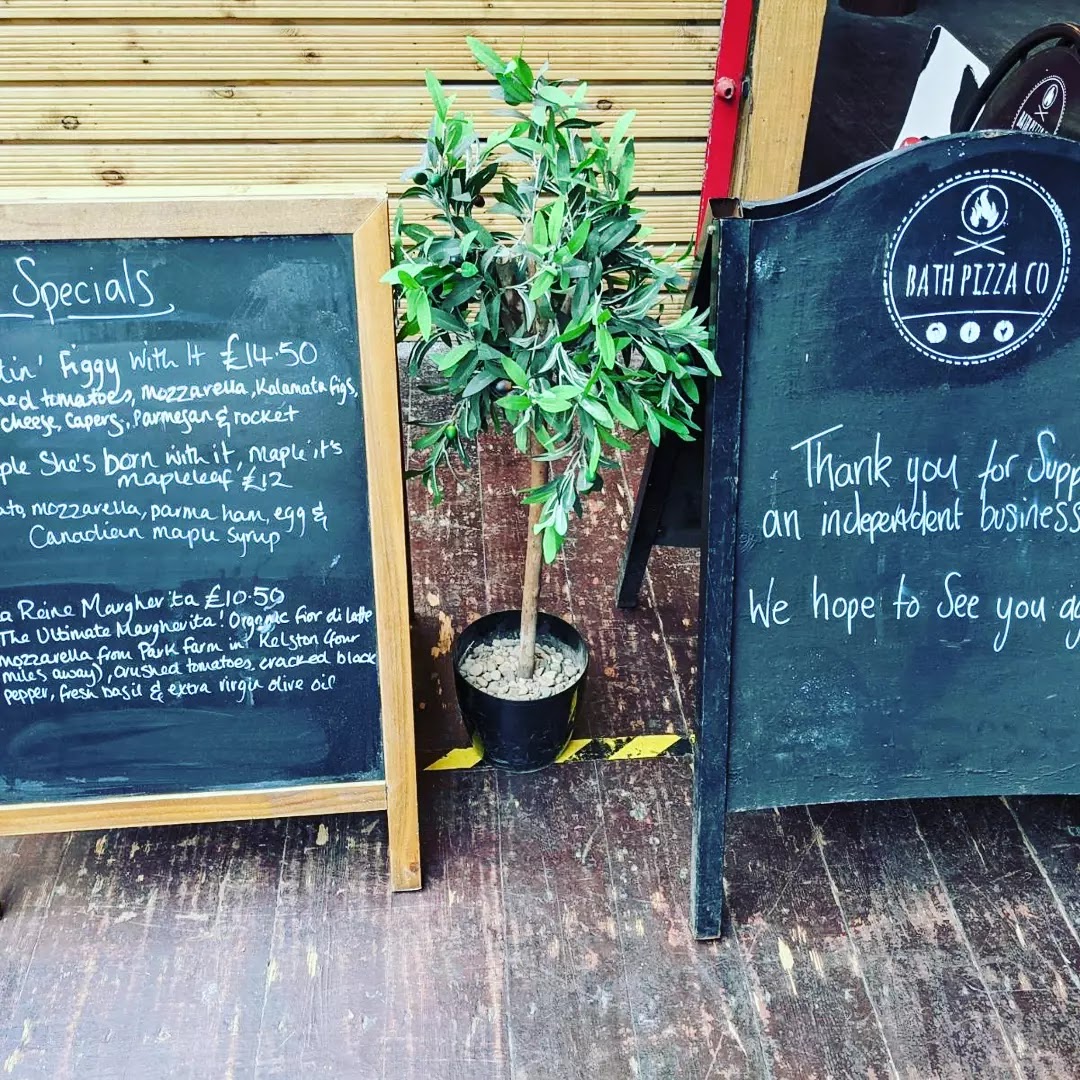 Specials
tin' Figgy With It £14.50
ed tomatoes, mozzarella, Kalamata figs,
cheese, Capers, Parmesan & rocket
ple She's born with it, maple it's
mapleleaf £12
ato, mozzarella, parma ham, egg &
Canadian maple syrup
a Reine Margherita £10.50
The Ultimate Margherita! Organic fior di latte
mozzarella from Park Farm in Kelston (four
miles away), crushed tomatoes, cracked black
pepper, fresh basil & extra virgin olive oil
BATH PIZZA CO
Thank you for Supp
an independent business
We hope to See you ag